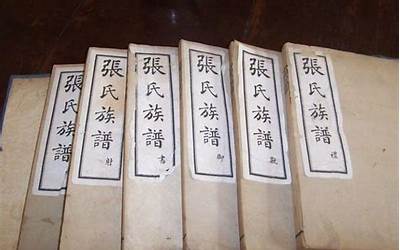 張氏族譜 禮
張氏族譜
張氏族譜 御
張氏族譜 書
張氏族譜 射
張氏族譜